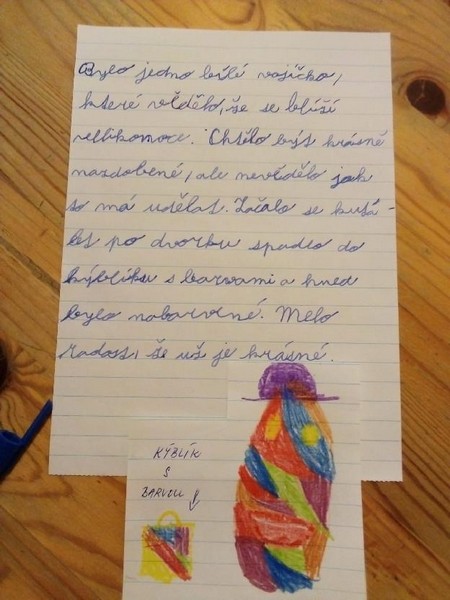 Bylo jedno bílé vajíčko,
které vědělo, že se blíží
velikonoce. Chtělo být krásně
nazdobené, ale nevědělo jak
to má udělat. Začalo se kutá-
let po dvorku spadlo do
kýblíku s barvami a hned
bylo nabarvené. Melo
radost, že už je krásné.
KÝBLÍK
S
BARVOU